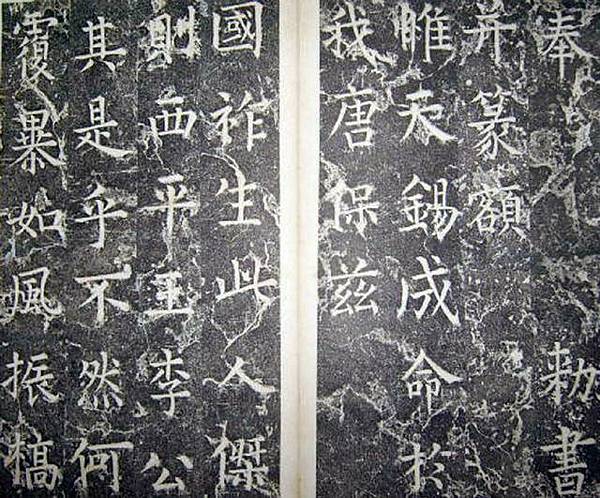 奉敕書
并篆額
惟天錫成命於
我唐保茲
國祚生此人傑
則西平王李公
其是乎不然何
覆暴如風振槁